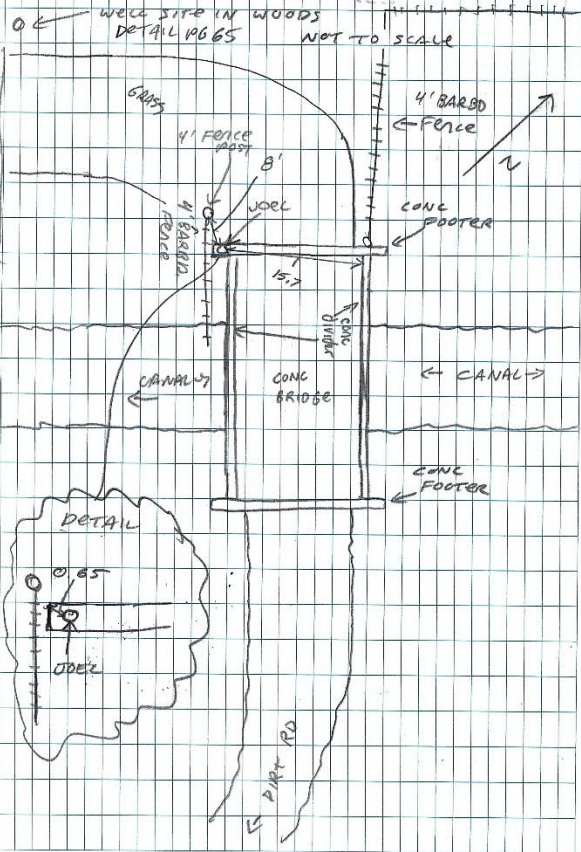 WELL SITE IN WOODS
DETAIL PG 65
NOT TO SCALE
GRASS
4' BARBD
Fence
N
4' Fence
POST
8'
JOEL
CONC
FOOTER
4' BARBD
Fence
15.7
CONC
DIVIDER
CANAL
CONC
BRIDGE
CANAL
CONC
FOOTER
DETAIL
0.65
JOEL
DIRT RD